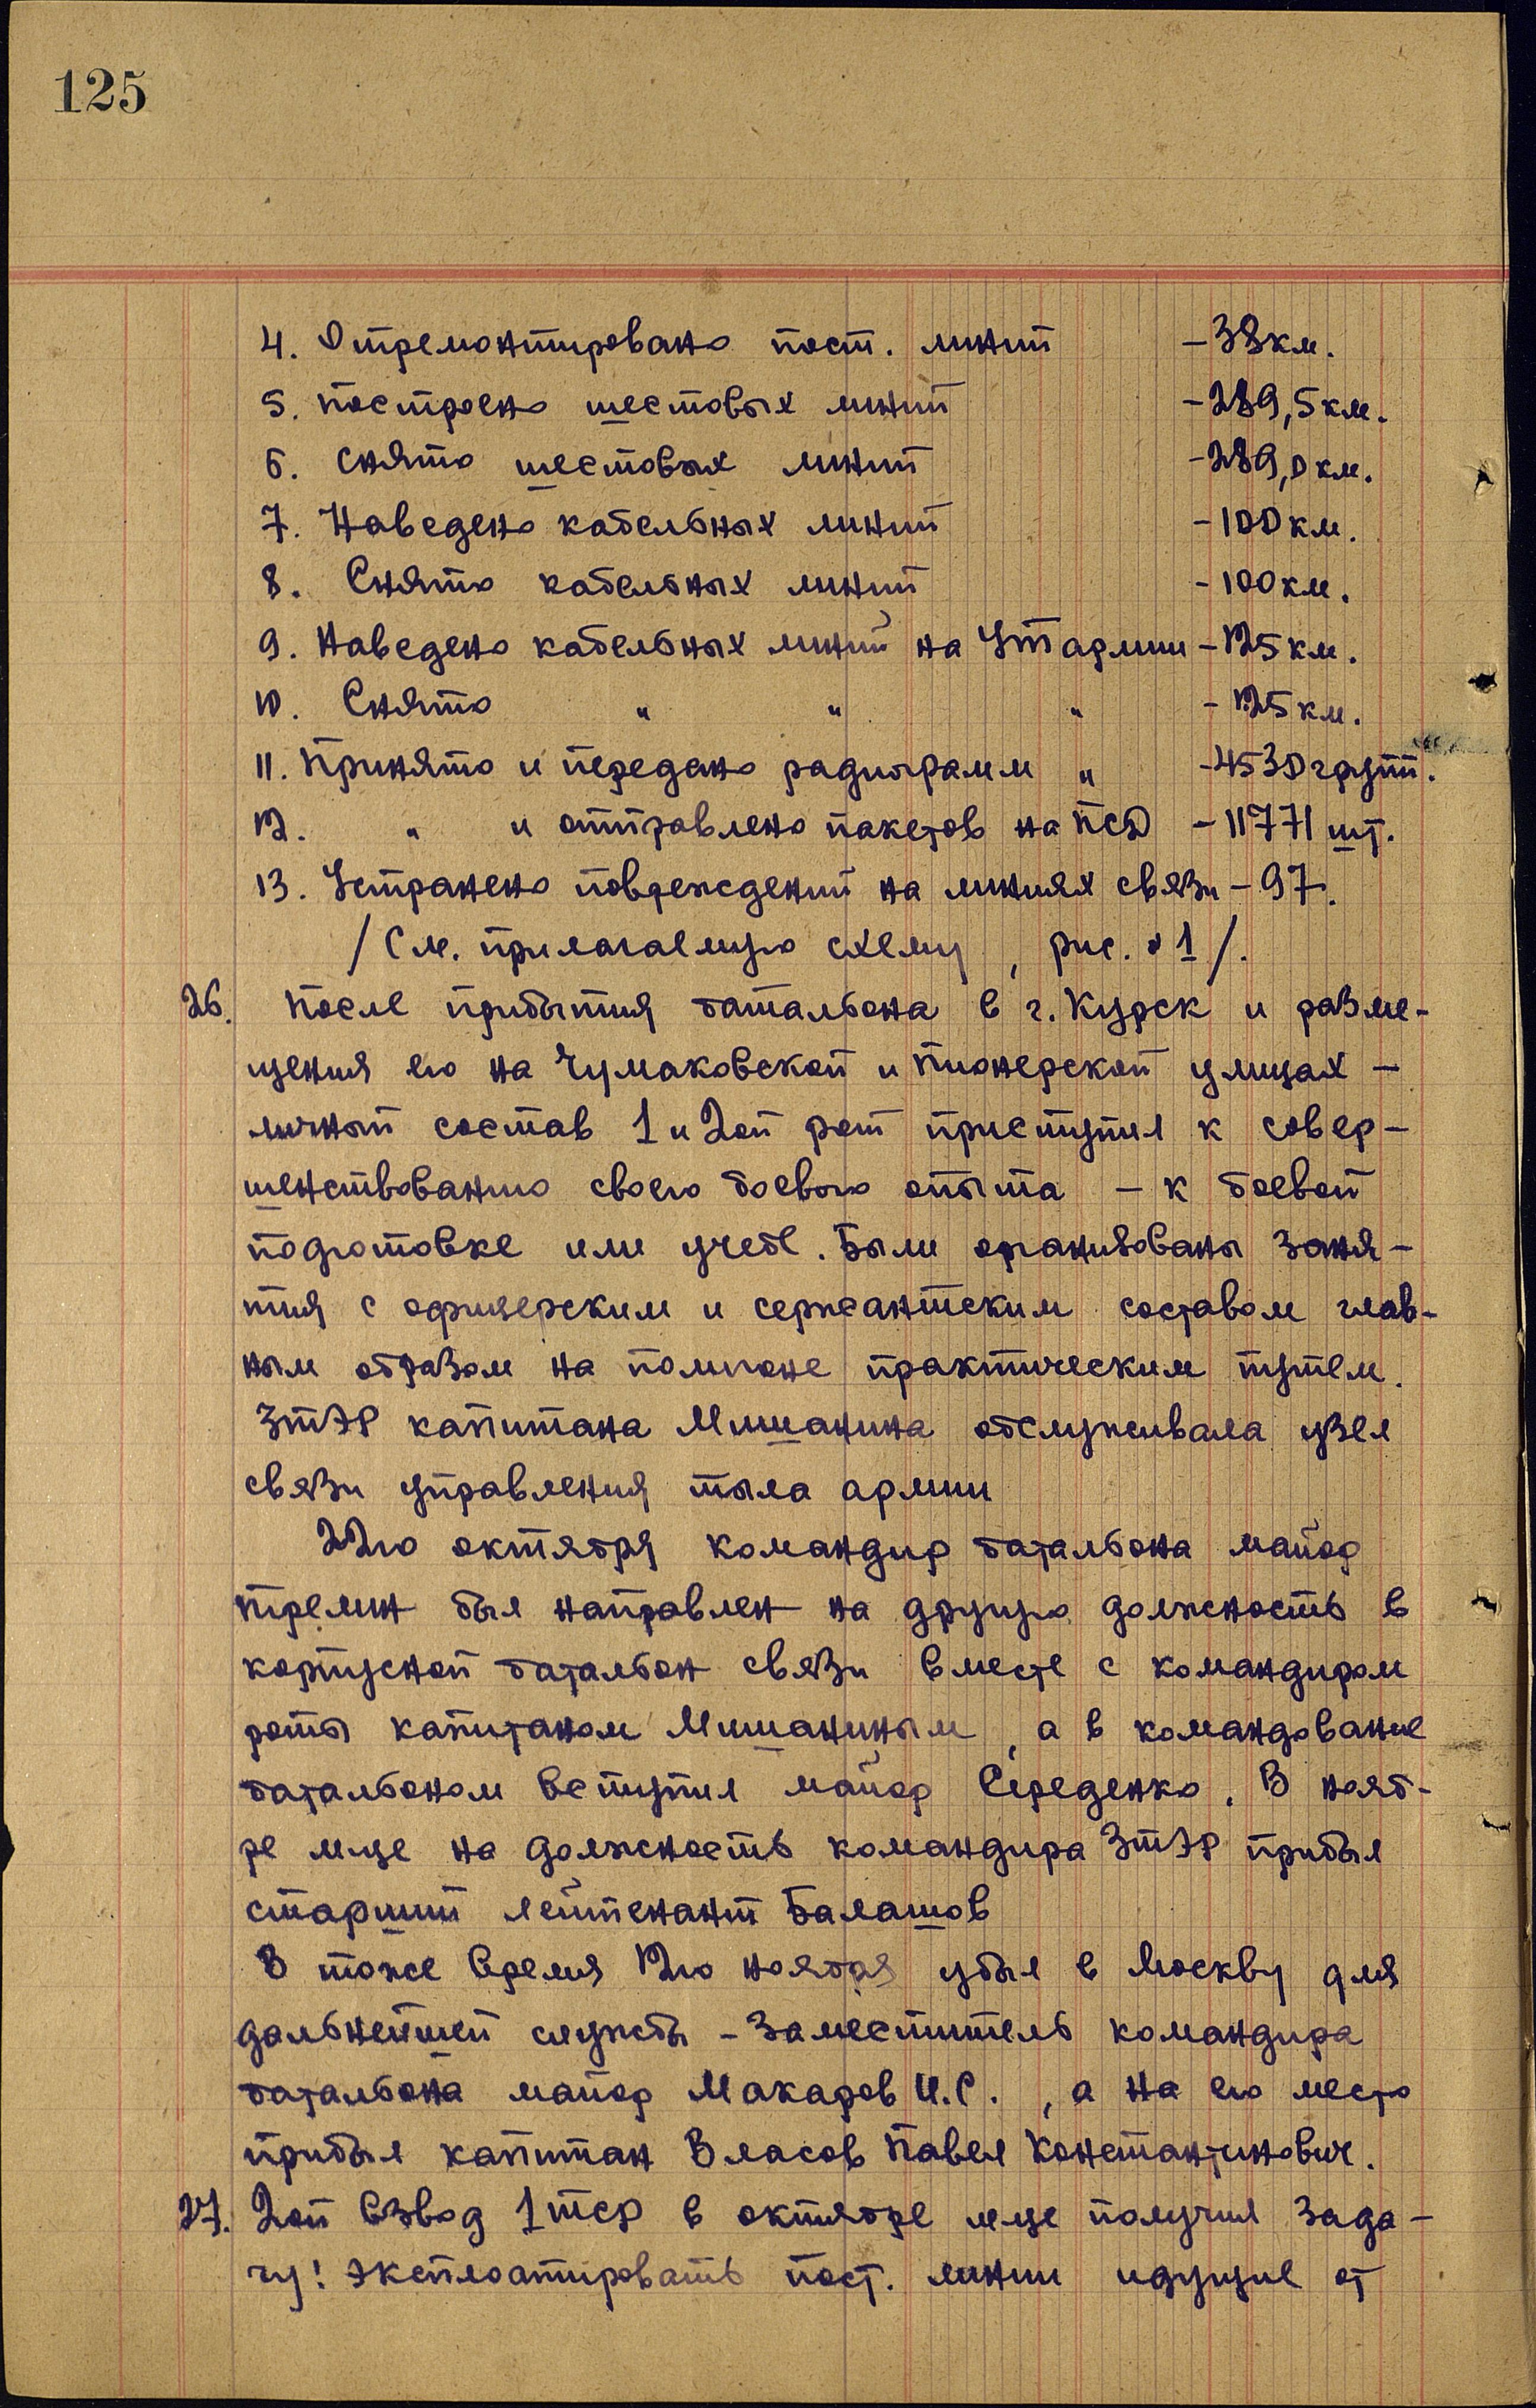 125
4. Отремонтировано пост. линий - 38 км.
5. построено шестовых линий - 289,5 км.
6. снято шестовых линий - 289,0 км.
7. Наведено кабельных линий - 100 км.
8. Снято кабельных линий - 100 км.
9. Наведено кабельных линий на УТ армии - 125 км.
10. Снято " " " - 125 км.
11. Принято и передано радиограмм " - 4530 групп.
12. " и отправлено пакетов на ПСД - 11771 шт.
13. Устранено повреждений на линиях связи - 97.
/См. прилагаемую схему, рис. № 1/.
26. После прибытия батальона в г. Курск и разме-
щения его на Чумаковской и Пионерской улицах -
личный состав 1 и 2ой рот приступил к совер-
шенствованию своего боевого опыта - к боевой
подготовке или учебе. Были организованы заня-
тия с офицерским и сержантским составом глав-
ным образом на полигоне практическим путем.
3тэр капитана Мишанина обслуживала узел
связи управления тыла армии
22го октября командир батальона майор
Тремин был направлен на другую должность в
корпусной батальон связи вместе с командиром
роты капитаном Мишаниным, а в командование
батальоном вступил майор Середенко. В нояб-
ре м-це на должность командира 3тэр прибыл
старший лейтенант Балашов
В тоже время 12го ноября убыл в Москву для
дальнейшей службы - Заместитель командира
батальона майор Макаров И.С., а на его место
прибыл капитан Власов Павел Константинович.
27. 2ой взвод 1тср в октябре м-це получил зада-
чу! эксплоатировать пост. линии идущие от